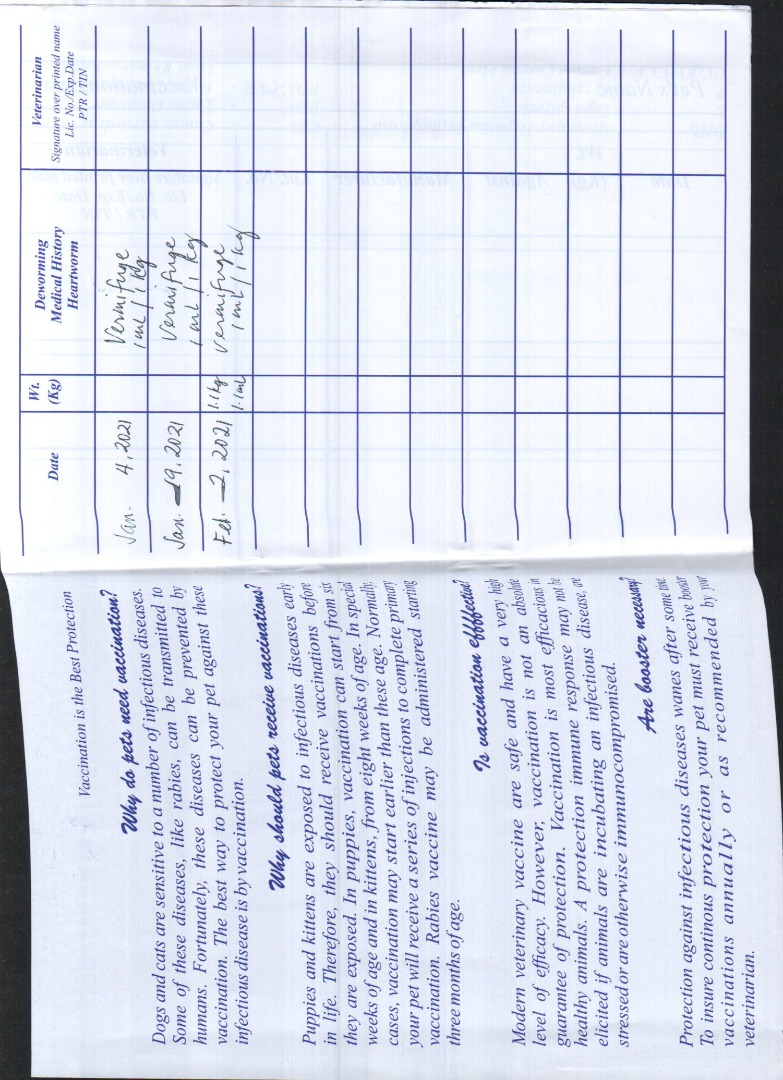 Vaccination is the Best Protection
Why do pets need vaccination?
Dogs and cats are sensitive to a number of infectious diseases.
Some of these diseases, like rabies, can be transmitted to
humans. Fortunately, these diseases can be prevented by
vaccination. The best way to protect your pet against these
infectious disease is by vaccination.
Why should pets receive vaccinations?
Puppies and kittens are exposed to infectious diseases early
in life. Therefore, they should receive vaccinations before
they are exposed. In puppies, vaccination can start from six
weeks of age and in kittens, from eight weeks of age. In special
cases, vaccination may start earlier than these age. Normally,
your pet will receive a series of injections to complete primary
vaccination. Rabies vaccine may be administered starting
three months of age.
Is vaccination effffective?
Modern veterinary vaccine are safe and have a very high
level of efficacy. However, vaccination is not an absolute
guarantee of protection. Vaccination is most efficacious in
healthy animals. A protection immune response may not be
elicited if animals are incubating an infectious disease, are
stressed or are otherwise immunocompromised.
Are booster necessary?
Protection against infectious diseases wanes after some time.
To insure continous protection your pet must receive booster
vaccinations annually or as recommended by your
veterinarian.
Date
Wt.
(Kg)
Deworming
Medical History
Heartworm
Veterinarian
Signature over printed name
Lic. No./Exp.Date
PTR / TIN
Jan. 4, 2021
Vermifuge
1 mL / 1 kg
Jan. 19, 2021
Vermifuge
1 mL / 1 kg
Feb. 2, 2021
1.1 kg
1.1 mL
Vermifuge
1 mL / 1 kg